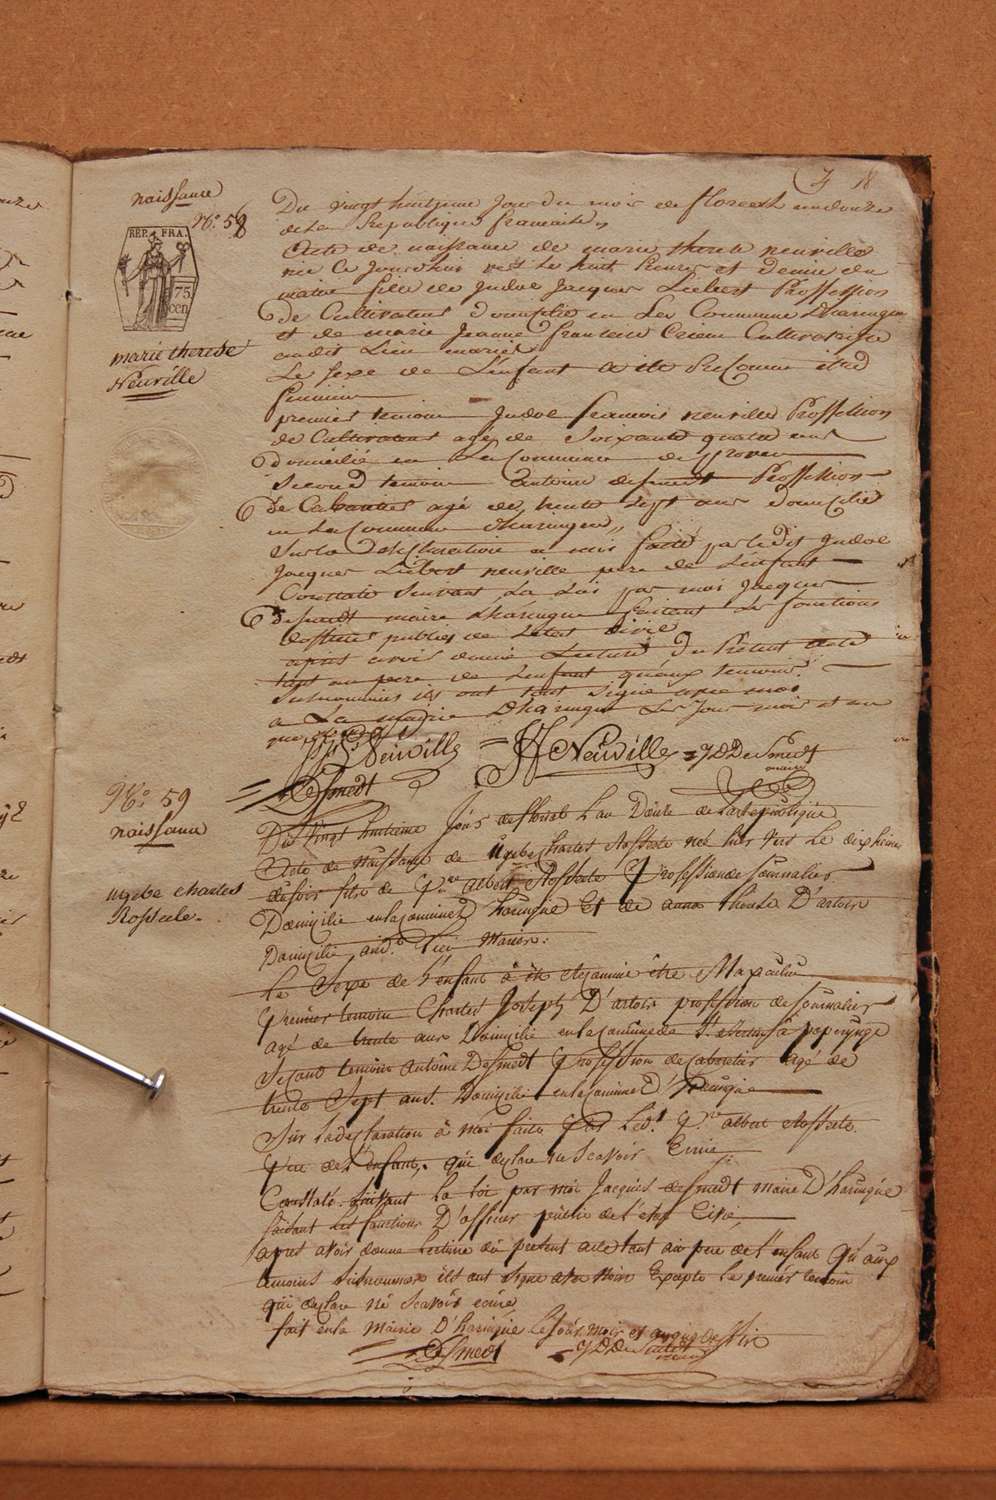 naissance
No. 58
REP. FRA.
75
cen
marie therese
Neuville
18
Du vingt huitieme Jour du mois de floreal an douze
de la Republique francaise
Acte de naissance de marie therese neuville
née Ce Jourdhui vers Le huit heures et demie du
matin fille de Judoc Jacques Liebert Proffession
de Cultivateur domicilié en La Commune dharingue
et de marie Jeanne francoise Cultivatrice
audit Lieu mariés
Le sexe de L'enfant a eté Reconnu etre
feminin
premier temoin Judoc francois neuville Proffession
de Cultivateur agé de Soixante quatre ans
domicilié en La Commune de proven
Second temoin antoine desmedt Proffession
de Cabaretier agé de trente sept ans domicilié
en La Commune dharingue
Sur la declaration a moi faite par ledit Judoc
Jacques Liebert neuville pere de L'enfant
Constaté Suivant La Loi par moi Jacques
desmedt maire dharingue faisant Les fonctions
dofficier public de Letat Civil
apres avoir donné Lecture du Présent acte
tant au pere de L'enfant qu'aux temoins
Susnommés ils ont tout Signé avec moi
a La mairie dharingue Les Jour mois et an
que
Neuville Neuville J D DeSmedt
maire
DeSmedt
No. 59
naissance
ugebe charles
Rosseele.
Du vingt huitieme Jour de floreal L'an Douze de la Republique
Acte de Naissance de ugebe Charles Rosseele né hier vers Le dix heures
du soir fils de Pre. albert Rosseele Profession de Journalier
Domicilié en la commune d'haringue Et de anna therese D'artois
Domicilié aud. Lieu Mariés.
Le Sexe de L'enfant à été été examiné être Masculin
Premier temoin Charles Joseph D'artois profession de Journalier
agé de trente ans Domicilié en la commune de
Second temoin Antoine DeSmedt Profession de Cabaretier agé de
trente Sept ans Domicilié en la commune D'haringue
Sur la declaration à moi faite Par Led. P. albert Rosseele
Pere de L'enfant, qui declare ne scavoir Ecrire
Constaté Suivant La Loi par moi Jacques desmedt Maire D'haringue
faisant Les fonctions D'officier public de L'etat Civil,
apres avoir donné Lecture du present acte tant au pere de L'enfant Qu'aux
temoins Susnommés ils ont signé avec Moi Excepté Le premier temoin
qui declare né scavoir ecrire
fait en la Mairie D'haringue Le Jour, Mois et an
DeSmedt J D DeSmedt